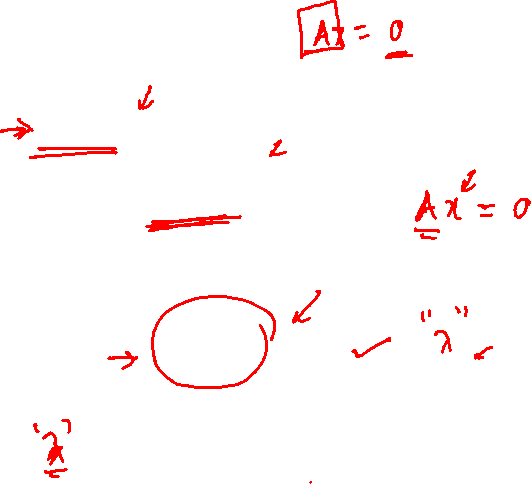 Ax = 0
Ax = 0
"λ"
"λ"